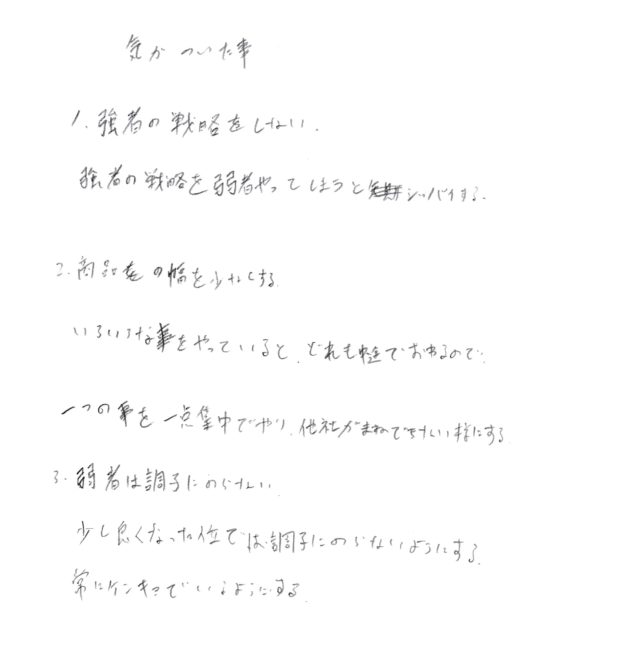 気がついた事
1. 強者の戦略をしない.
強者の戦略を弱者やってしまうとシッパイする.
2. 商品の幅を少なくする.
いろいろな事をやっていると、どれも中途でおわるので.
一つの事を一点集中でやり、他社がまねできない様にする
3. 弱者は調子にのらない.
少し良くなった位では調子にのらないようにする.
常にケンキョでいるようにする.